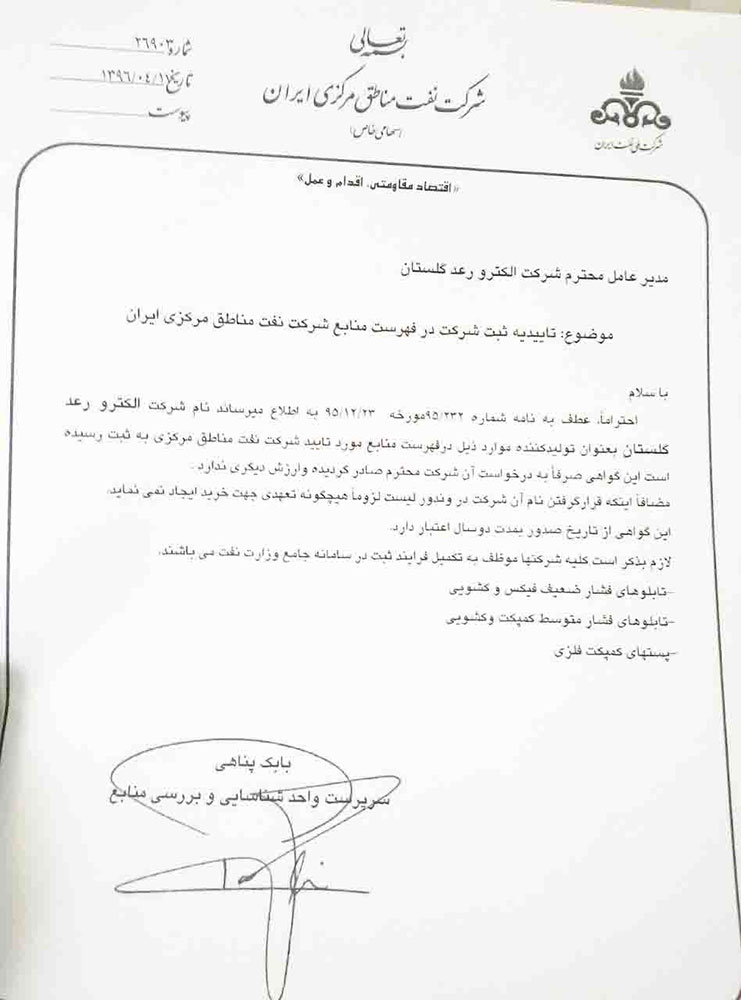 بسمه تعالی
شماره ۲۶۹۰۳
تاریخ ۱۳۹۶/۰۴/۱
پیوست
شرکت نفت مناطق مرکزی ایران
(سهامی خاص)
شرکت ملی نفت ایران
«اقتصاد مقاومتی، اقدام و عمل»
مدیر عامل محترم شرکت الکترو رعد گلستان
موضوع: تاییدیه ثبت شرکت در فهرست منابع شرکت نفت مناطق مرکزی ایران
با سلام
احتراماً، عطف به نامه شماره ۹۵/۲۳۲مورخه ۹۵/۱۲/۲۳ به اطلاع میرساند نام شرکت الکترو رعد
گلستان بعنوان تولیدکننده موارد ذیل درفهرست منابع مورد تایید شرکت نفت مناطق مرکزی به ثبت رسیده
است این گواهی صرفاً به درخواست آن شرکت محترم صادر گردیده وارزش دیگری ندارد .
مضافاً اینکه قرارگرفتن نام آن شرکت در وندور لیست لزوماً هیچگونه تعهدی جهت خرید ایجاد نمی نماید.
این گواهی از تاریخ صدور بمدت دوسال اعتبار دارد.
لازم بذکر است کلیه شرکتها موظف به تکمیل فرایند ثبت در سامانه جامع وزارت نفت می باشند.
-تابلوهای فشار ضعیف فیکس و کشویی
-تابلوهای فشار متوسط کمپکت وکشویی
-پستهای کمپکت فلزی
بابک پناهی
سرپرست واحد شناسایی و بررسی منابع